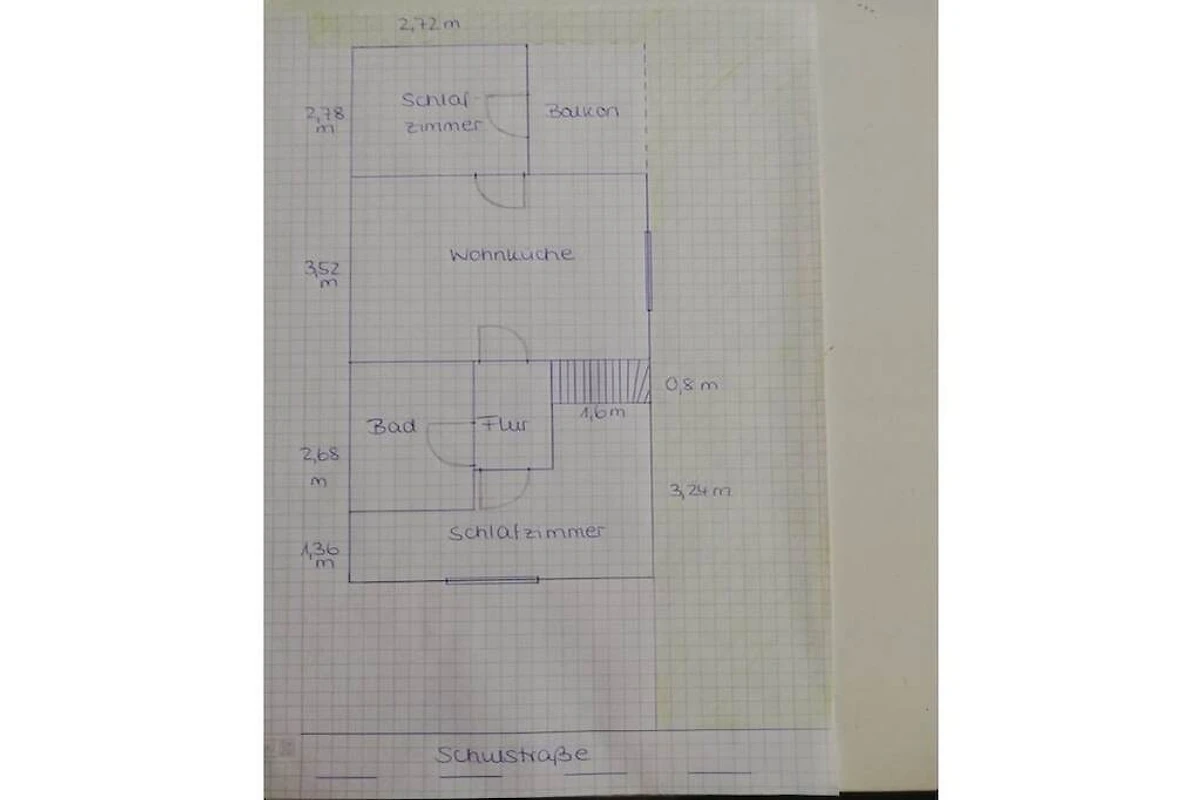 2,72 m
Schlaf-
zimmer
Balkon
2,78
m
Wohnküche
3,52
m
0,8 m
1,6 m
Bad
Flur
2,68
m
3,24 m
Schlafzimmer
1,36
m
Schulstraße